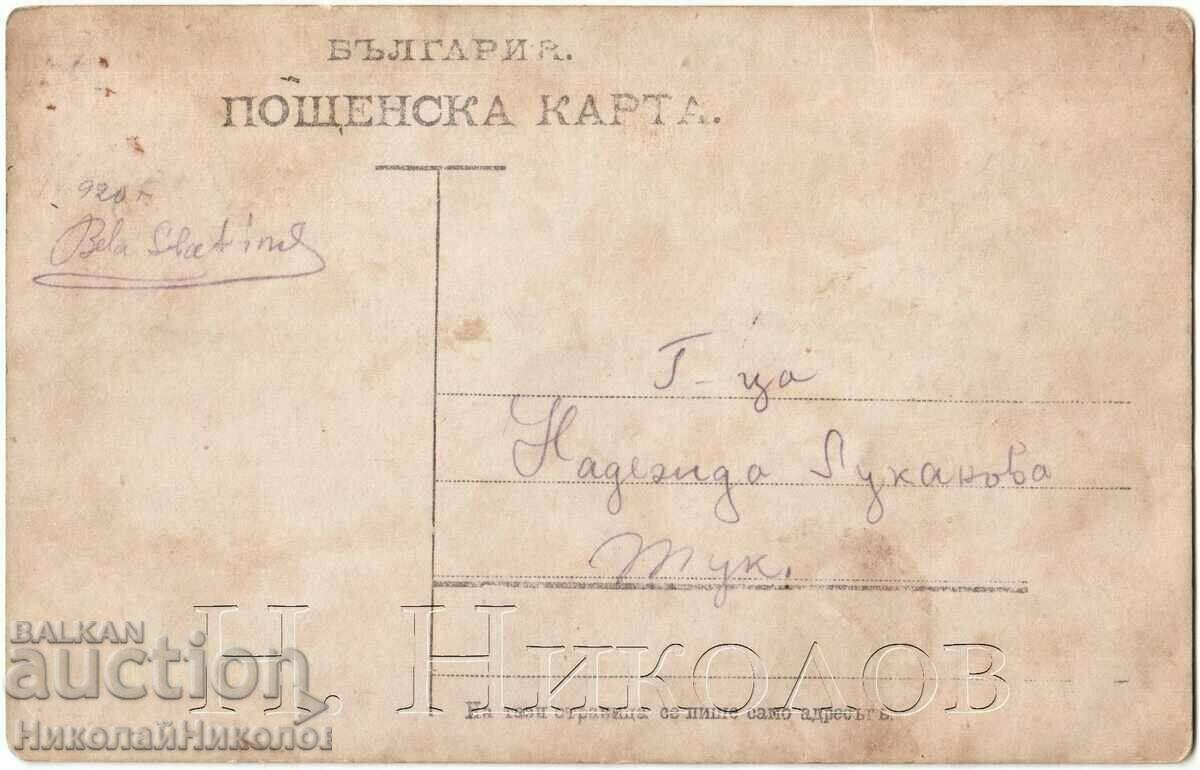 БЪЛГАРИЯ.
ПОЩЕНСКА КАРТА.
920 г.
Bela Slatina
Г-ца
Надежда Луканова
Тук.
BALKAN
auction
НиколайНиколов
Н. Николов
На тази страница се пише само адресътъ.